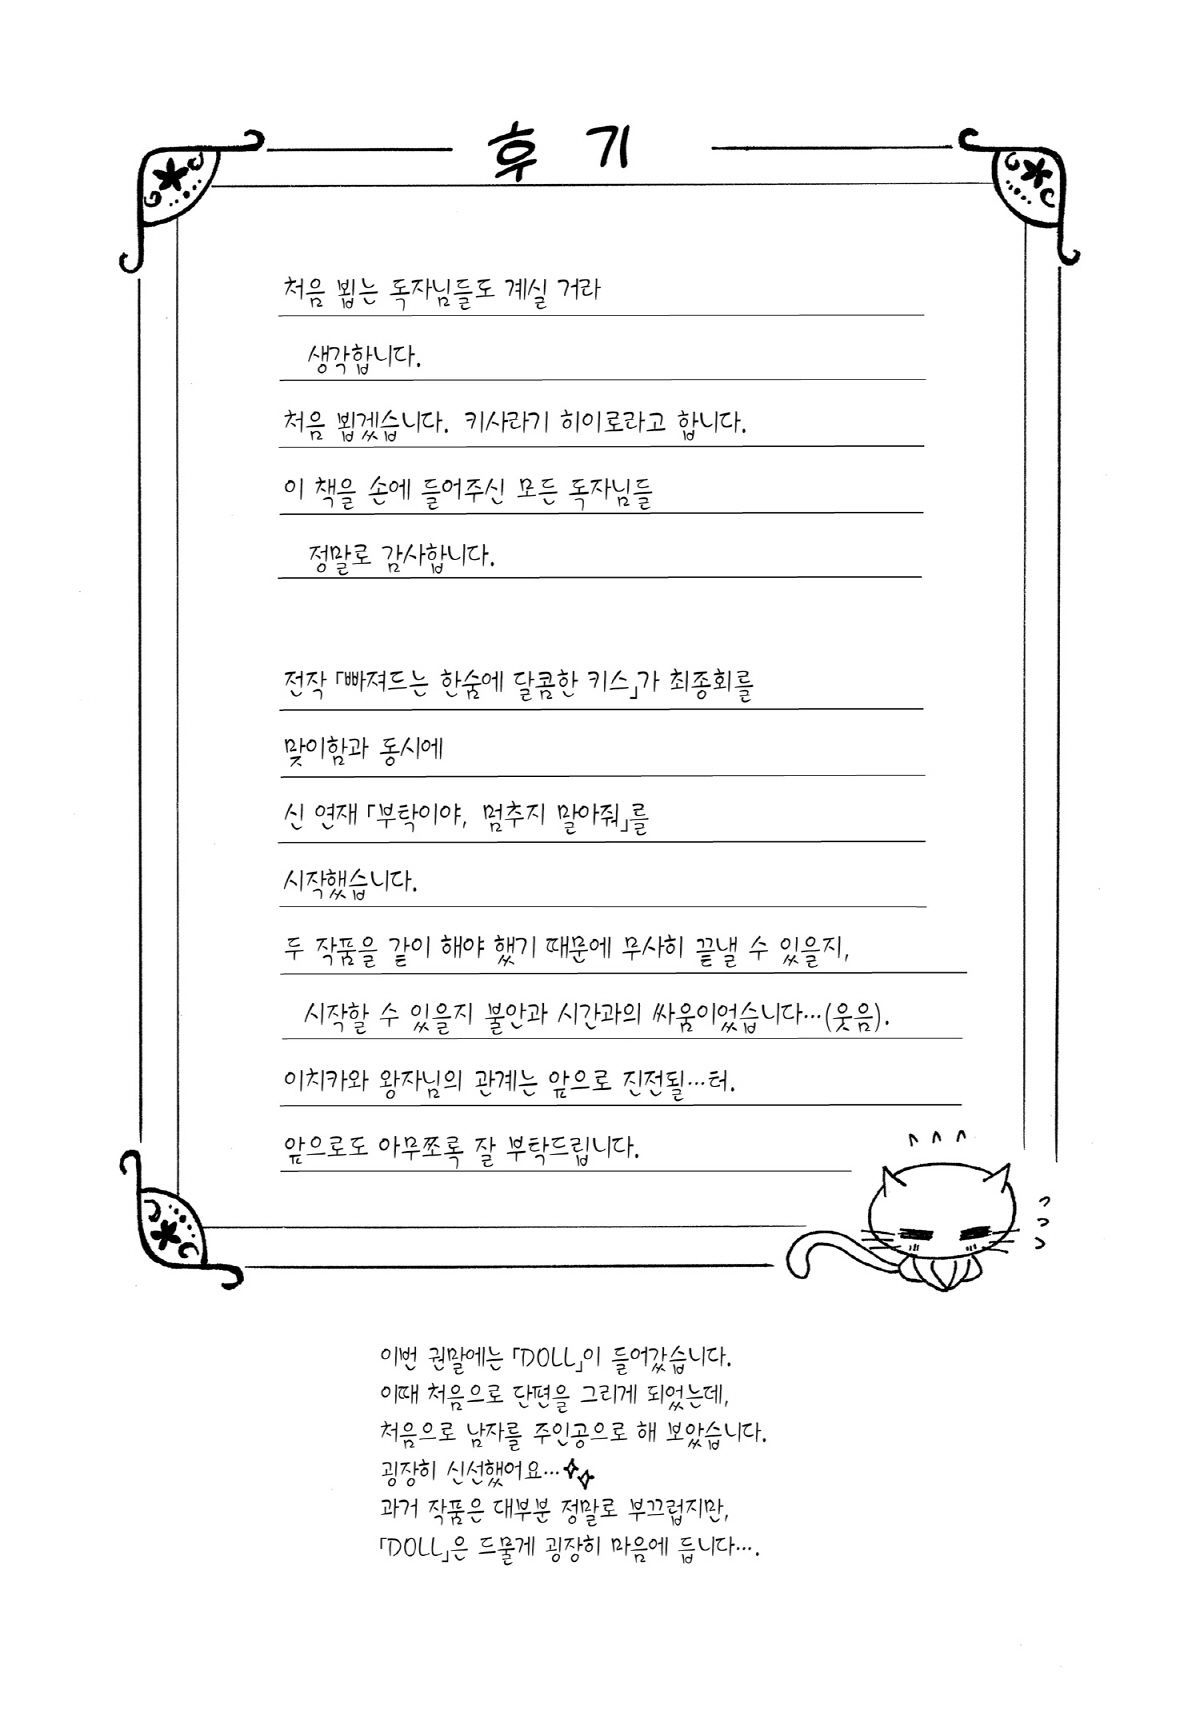 후기
처음 뵙는 독자님들도 계실 거라
생각합니다.
처음 뵙겠습니다. 키사라기 히이로라고 합니다.
이 책을 손에 들어주신 모든 독자님들
정말로 감사합니다.
전작 「빠져드는 한숨에 달콤한 키스」가 최종회를
맞이함과 동시에
신 연재 「부탁이야, 멈추지 말아줘」를
시작했습니다.
두 작품을 같이 해야 했기 때문에 무사히 끝낼 수 있을지,
시작할 수 있을지 불안과 시간과의 싸움이었습니다…(웃음).
이치카와 왕자님의 관계는 앞으로 진전될…터.
앞으로도 아무쪼록 잘 부탁드립니다.
이번 권말에는 「DOLL」이 들어갔습니다.
이때 처음으로 단편을 그리게 되었는데,
처음으로 남자를 주인공으로 해 보았습니다.
굉장히 신선했어요…
과거 작품은 대부분 정말로 부끄럽지만,
「DOLL」은 드물게 굉장히 마음에 듭니다….